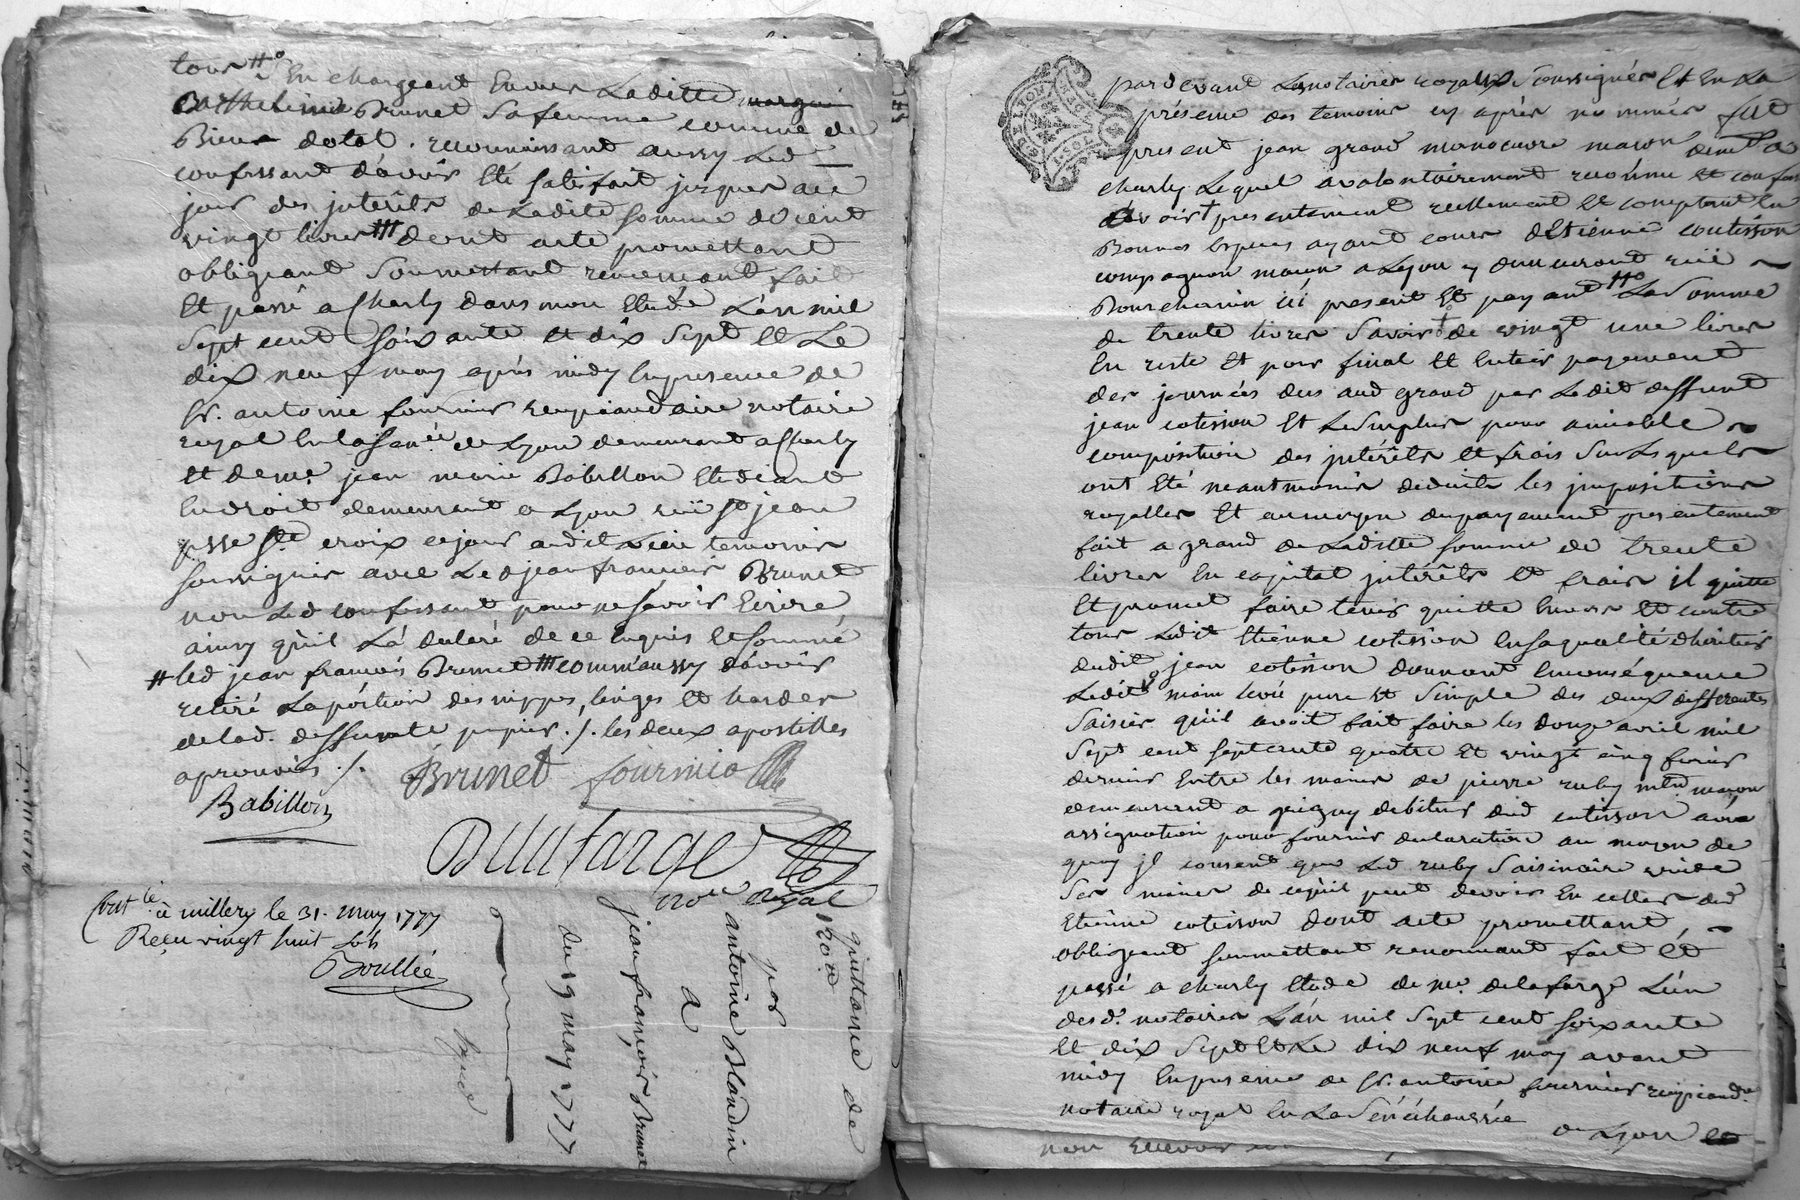 tous # En chargeant Envers Laditte
Barthelmie Brunet Sa femme comme de
Biens dotal. reconnoissant aussy Led
confessant d'avoir Eté satisfait jusques au
jour des jnterêts de Ladite somme de cent
vingt livres dont acte promettant
obligeant Soumettant renonceant fait
Et passé a Charly dans mon Etude L'an mil
Sept cent soixante et dix Sept Et Le
dix neuf may après midy En presence de
Sr. antoine fournier recipiandaire notaire
royal En la Sen.ée de Lyon demeurant a Charly
et de me. jean marie Babillon Etudiant
En droit demeurant a Lyon ruë St jean
psse Ste croix ce jour audit Lieu temoins
soussignés avec Led jean francois Brunet
non Led confessant pour ne savoir Ecrire
ainsy qu'il L'a declaré de ce Enquis Et sommé
# led jean francois Brunet comm'aussy d'avoir
retiré La portion des nippes, linges Et hardes
de lad. deffunte /. les deux apostilles
aprouvées /.
Brunet fournier
Babillon
Delafarge
nore royal
Cont.lé à millery le 31. may 1777
Reçu vingt huit sols
Boullée
quittance de
120##
par
antoine Blandin
a
jean françois Brunet
du 19 may 1777
pardevant Les notaires royaux Soussignés Et En La
présence des temoins cy après nommés fut
present jean grand manoeuvre maçon demt a
Charly Lequel a volontairement reconnu et confessé
avoir presentement reellement Et comptant En
Bonnes Especes ayant cours d'Etienne cotisson
compagnon maçon a Lyon y demeurant ruë
Bourchanin ici present Et payant La somme
de trente livres Savoir de vingt une livres
En reste Et pour final Et Entier payement
des journées dues aud grand par Ledit deffunt
jean cotisson Et Le surplus pour amiable
composition des jnterêts Et frais Sur Lesquels
ont Eté neantmoins deduits les jmpositions
royalles Et au moyen du payement presentement
fait a grand de Laditte somme de trente
livres En capital jntérêts Et frais il quitte
Et promet faire tenir quitte Envers Et contre
tous Ledit Etienne cotisson En sa qualité d'héritier
dudit jean cotisson donnant En conséquence
Ledit main levée pure Et Simple des deux differentes
Saisies qu'il avoit fait faire les douze avril mil
Sept cent septente quatre Et vingt cinq fevrier
dernier Entre les mains de pierre ruby me maçon
demeurant a debiteur dud cotisson avec
assignation pour fournir declaration au moyen de
quoy jl consent que Led ruby Saisinaire vuide
Ses mains de ce qu'il peut devoir En celles dud
Etienne cotisson dont acte promettant,
obligeant soumettant renonceant fait Et
passé a Charly Etude de me. delafarge L'un
desd. notaires L'an mil Sept cent soixante
Et dix Sept Et Le dix neuf may avant
midy En presence de Sr. antoine fournier recipiandre
notaire royal En La Sénéchaussée
de Lyon Et
non recevoir